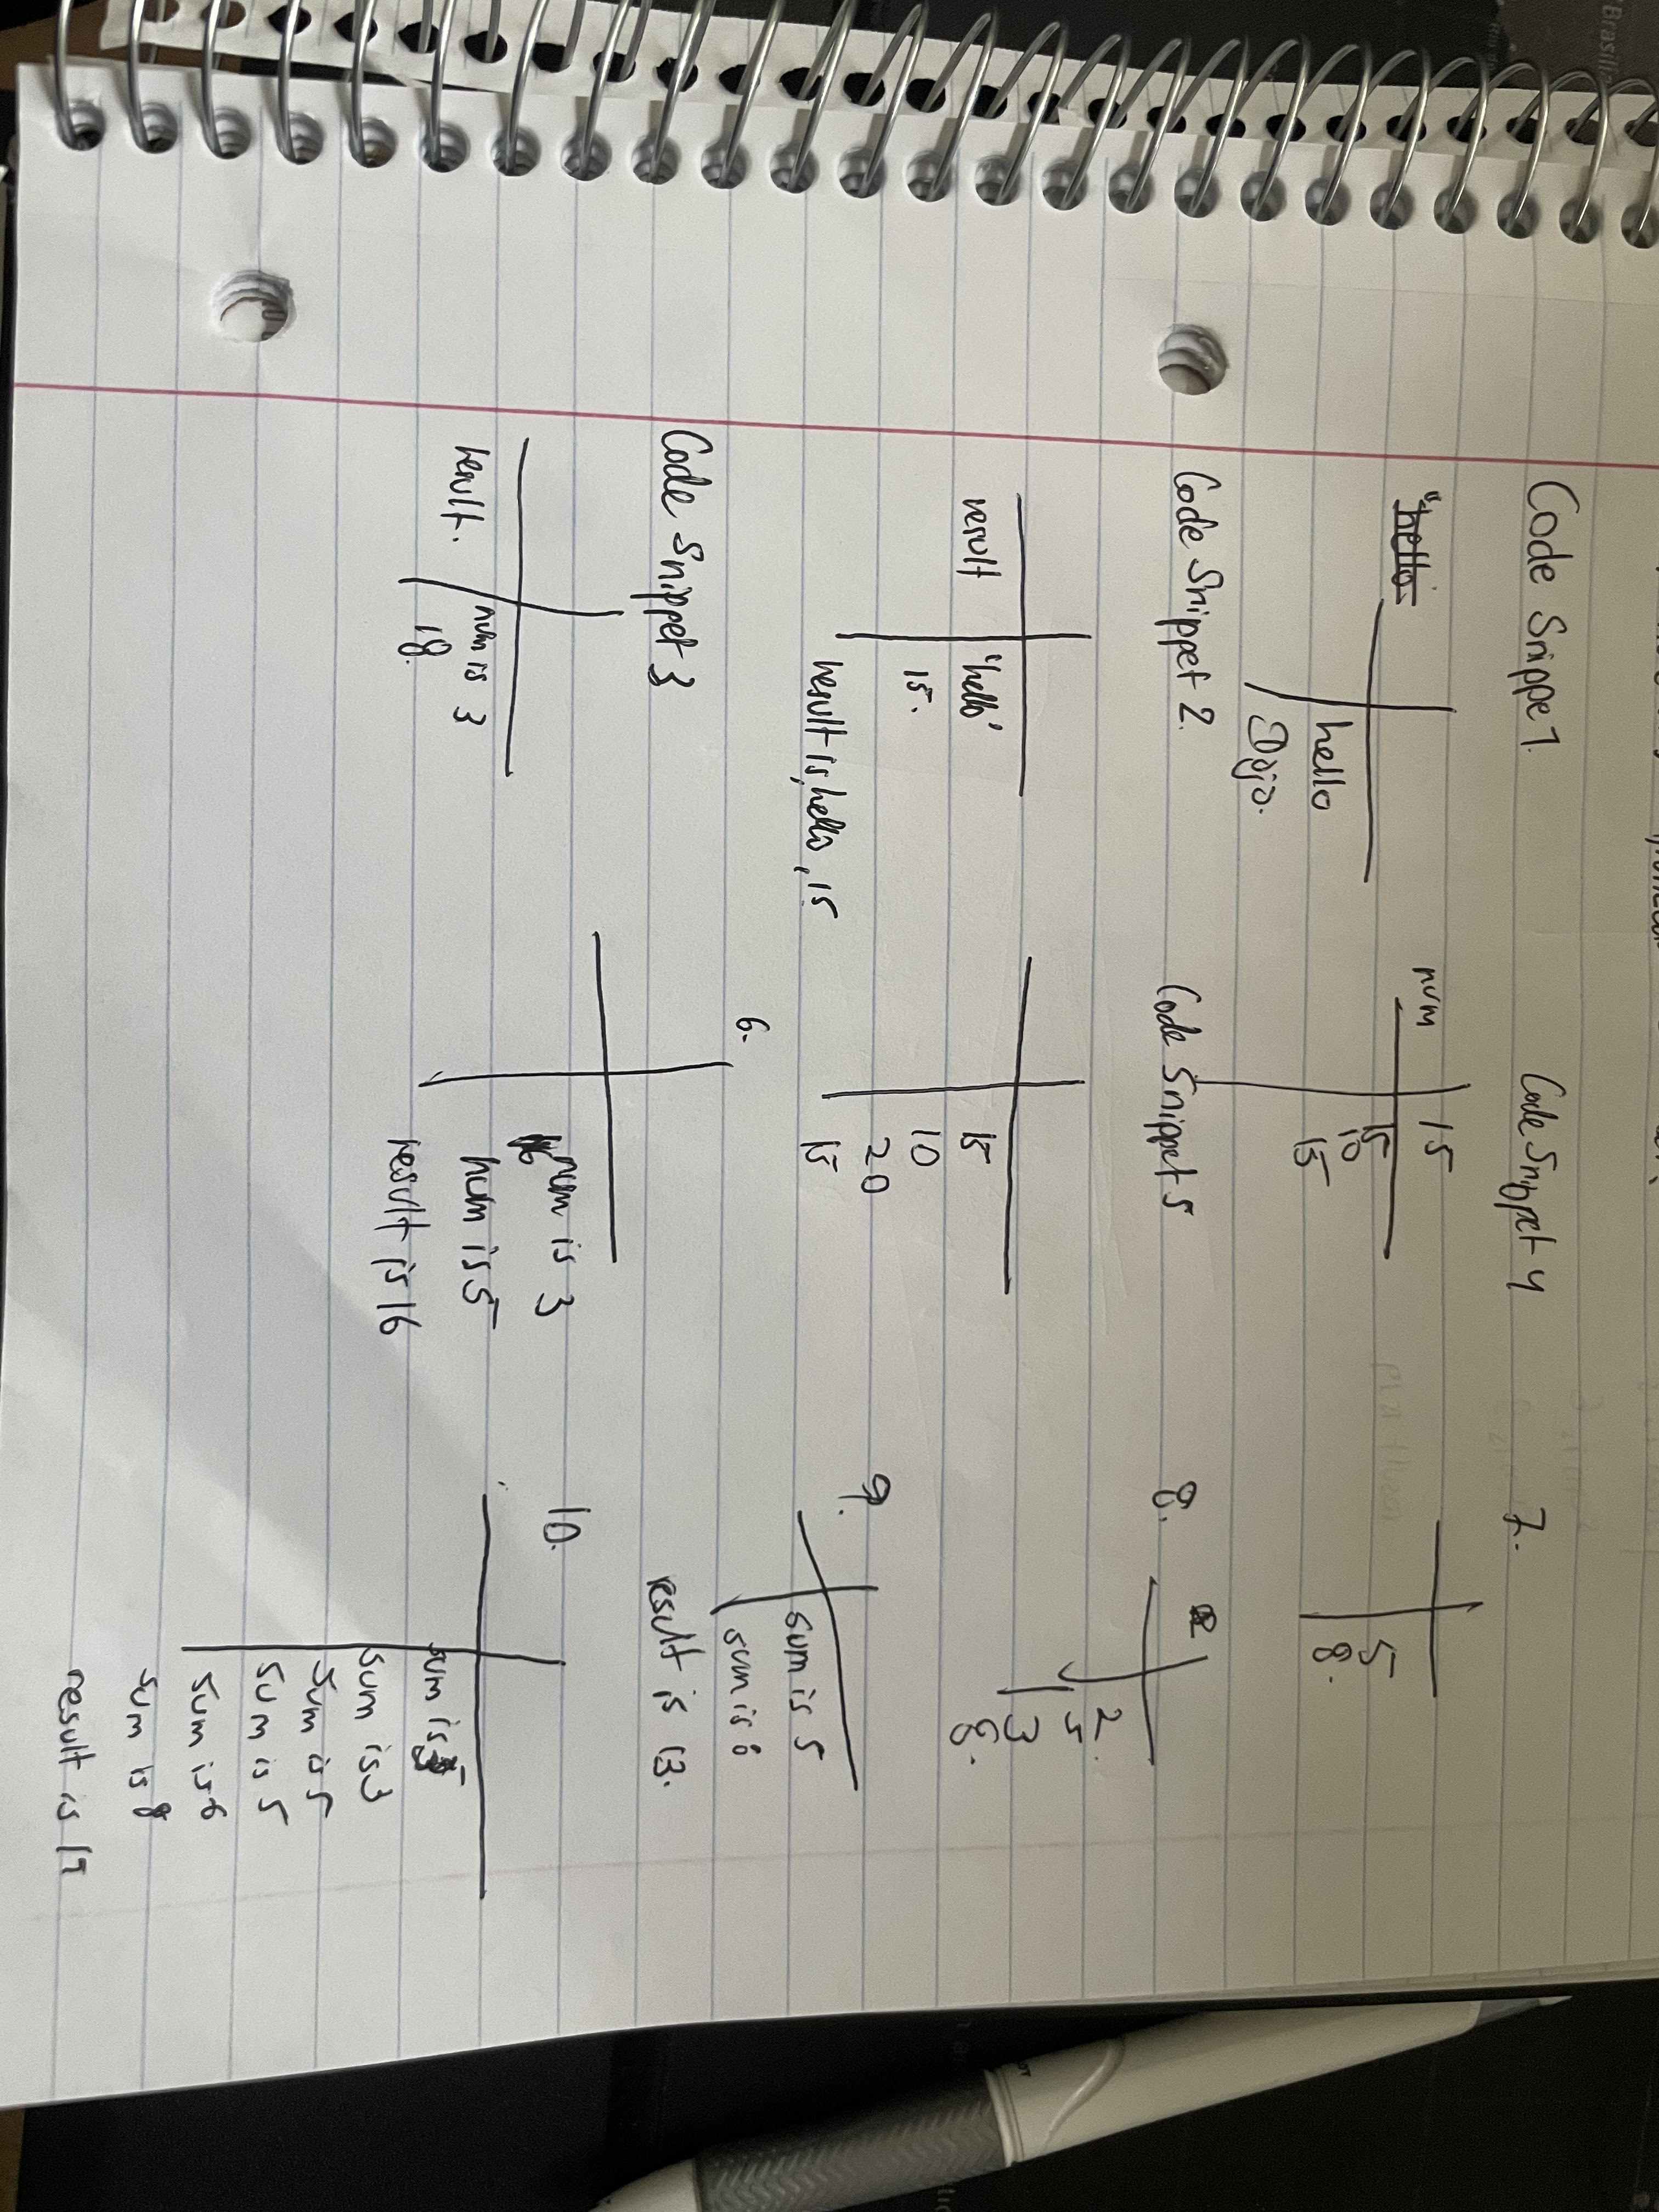 Code Snippe 1.
"hello
hello
Dojo.
Code Snippet 2.
result
"hello"
15.
result is, hello, 15
Code Snippet 3
result.
num is 3
18.
Code Snippet 4
num
15
15
10
15
Code Snippet 5
15
10
20
15
6.
num is 3
num is 5
result is 16
7.
5
8.
8.
2.
5
3
8.
9.
sum is 5
sum is 8
result is 13.
10.
sum is
sum is 3
sum is 5
sum is 5
sum is 6
sum is 8
result is 19